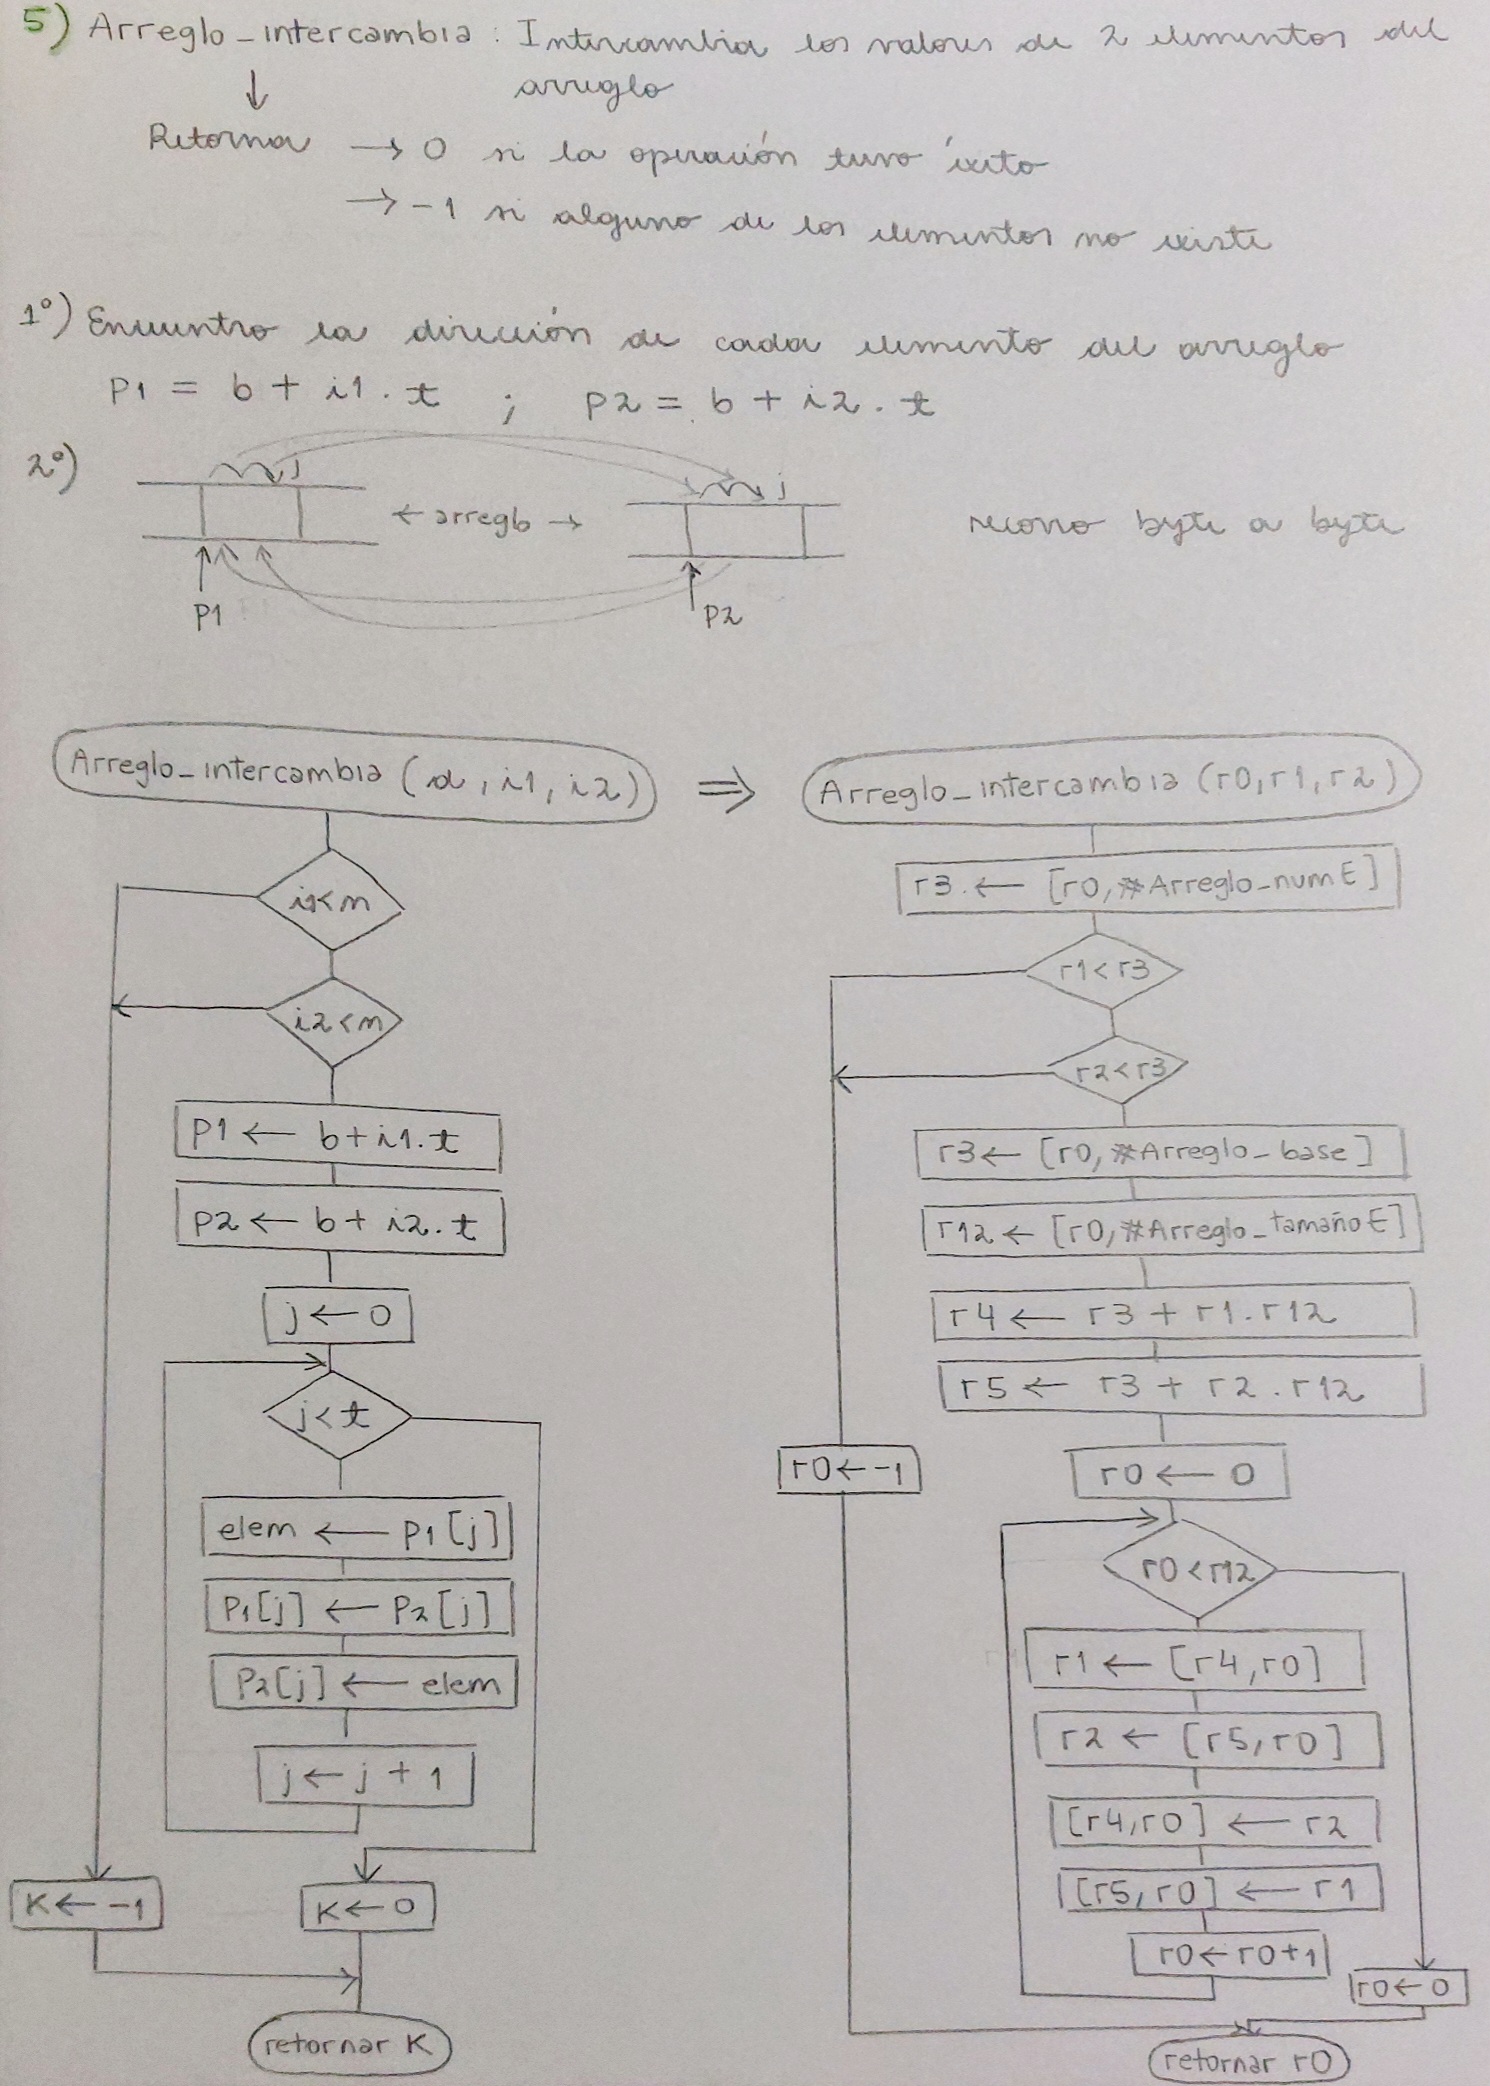 5) Arreglo_intercambia : Intercambia los valores de 2 elementos del
arreglo
↓
Retorna → 0 si la operación tuvo éxito
→ -1 si alguno de los elementos no existe
1°) Encuentro la dirección de cada elemento del arreglo
p1 = b + i1 . t ; p2 = b + i2 . t
2°)
j
j
← arreglo →
recorro byte a byte
p1
p2
Arreglo_intercambia (a, i1, i2)
i1<n
i2<n
p1 ← b+i1.t
p2 ← b+i2.t
j ← 0
j < t
elem ← p1 [j]
p1[j] ← p2[j]
p2[j] ← elem
j ← j + 1
K ← -1
K ← 0
retornar K
⇒
Arreglo_intercambia (r0, r1, r2)
r3 ← [r0, #Arreglo_numE]
r1 < r3
r2 < r3
r3 ← [r0, #Arreglo_base]
r12 ← [r0, #Arreglo_tamañoE]
r4 ← r3 + r1.r12
r5 ← r3 + r2.r12
r0 ← -1
r0 ← 0
r0 < r12
r1 ← [r4, r0]
r2 ← [r5, r0]
[r4, r0] ← r2
[r5, r0] ← r1
r0 ← r0+1
r0 ← 0
retornar r0